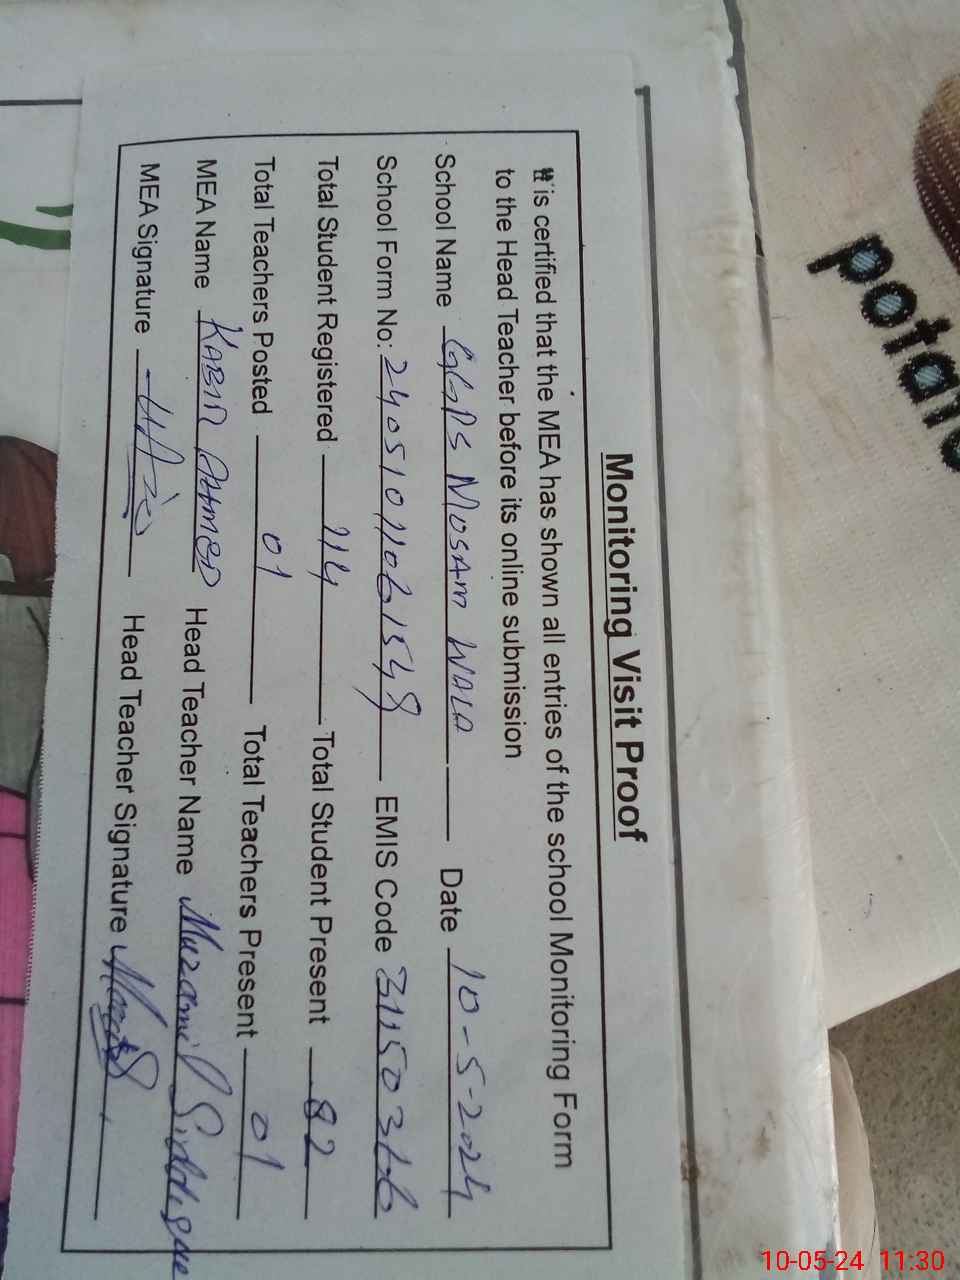 Monitoring Visit Proof
It is certified that the MEA has shown all entries of the school Monitoring Form
to the Head Teacher before its online submission
School Name GGPS MOSAM WALA Date 10-5-2024
School Form No: EMIS Code
Total Student Registered 114 Total Student Present 82
Total Teachers Posted 01 Total Teachers Present 01
MEA Name KABIR AHMED Head Teacher Name Muzamil Siddique
MEA Signature Head Teacher Signature
potato
10-05-24 11:30